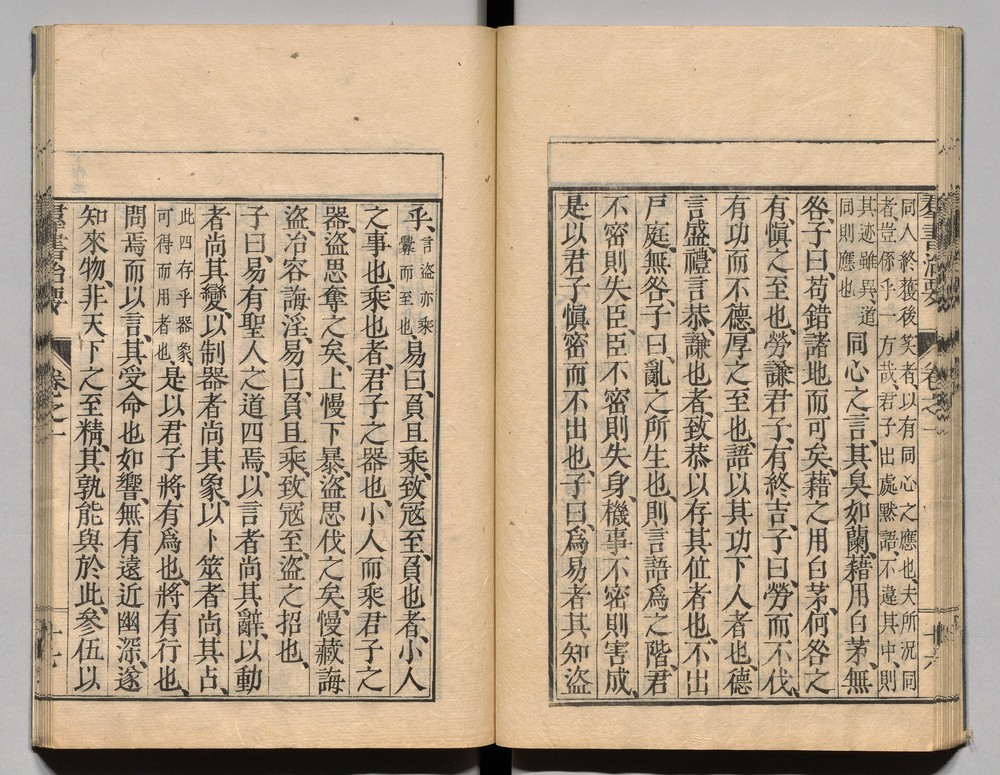 群書治要 卷之一 十六
同人終獲後笑者、以有同心之應也、夫所況同
者、豈係乎一方哉、君子出處黙語、不違其中、則
其迹雖異、道
同則應也
同心之言、其臭如蘭、藉用白茅、無
咎、子曰、苟錯諸地而可矣、藉之用白茅、何咎之
有、愼之至也、勞謙君子、有終吉、子曰、勞而不伐、
有功而不德、厚之至也、語以其功下人者也、德
言盛、禮言恭、謙也者、致恭以存其位者也、不出
戸庭、無咎、子曰、亂之所生也、則言語爲之階、君
不密則失臣、臣不密則失身、機事不密則害成、
是以君子愼密而不出也、子曰、爲易者其知盗
乎、
言盗亦乘
釁而至也
易曰、負且乘、致冦至、負也者、小人
之事也、乘也者、君子之器也、小人而乘君子之
器、盗思奪之矣、上慢下暴、盗思伐之矣、慢藏誨
盗、冶容誨淫、易曰、負且乘、致冦至、盗之招也、
子曰、易有聖人之道四焉、以言者尚其辭、以動
者尚其變、以制器者尚其象、以卜筮者尚其占、
此四存乎器象、
可得而用者也、
是以君子將有爲也、將有行也、
問焉而以言、其受命也如響、無有遠近幽深、遂
知來物、非天下之至精、其孰能與於此、參伍以
群書治要 卷之一 十六